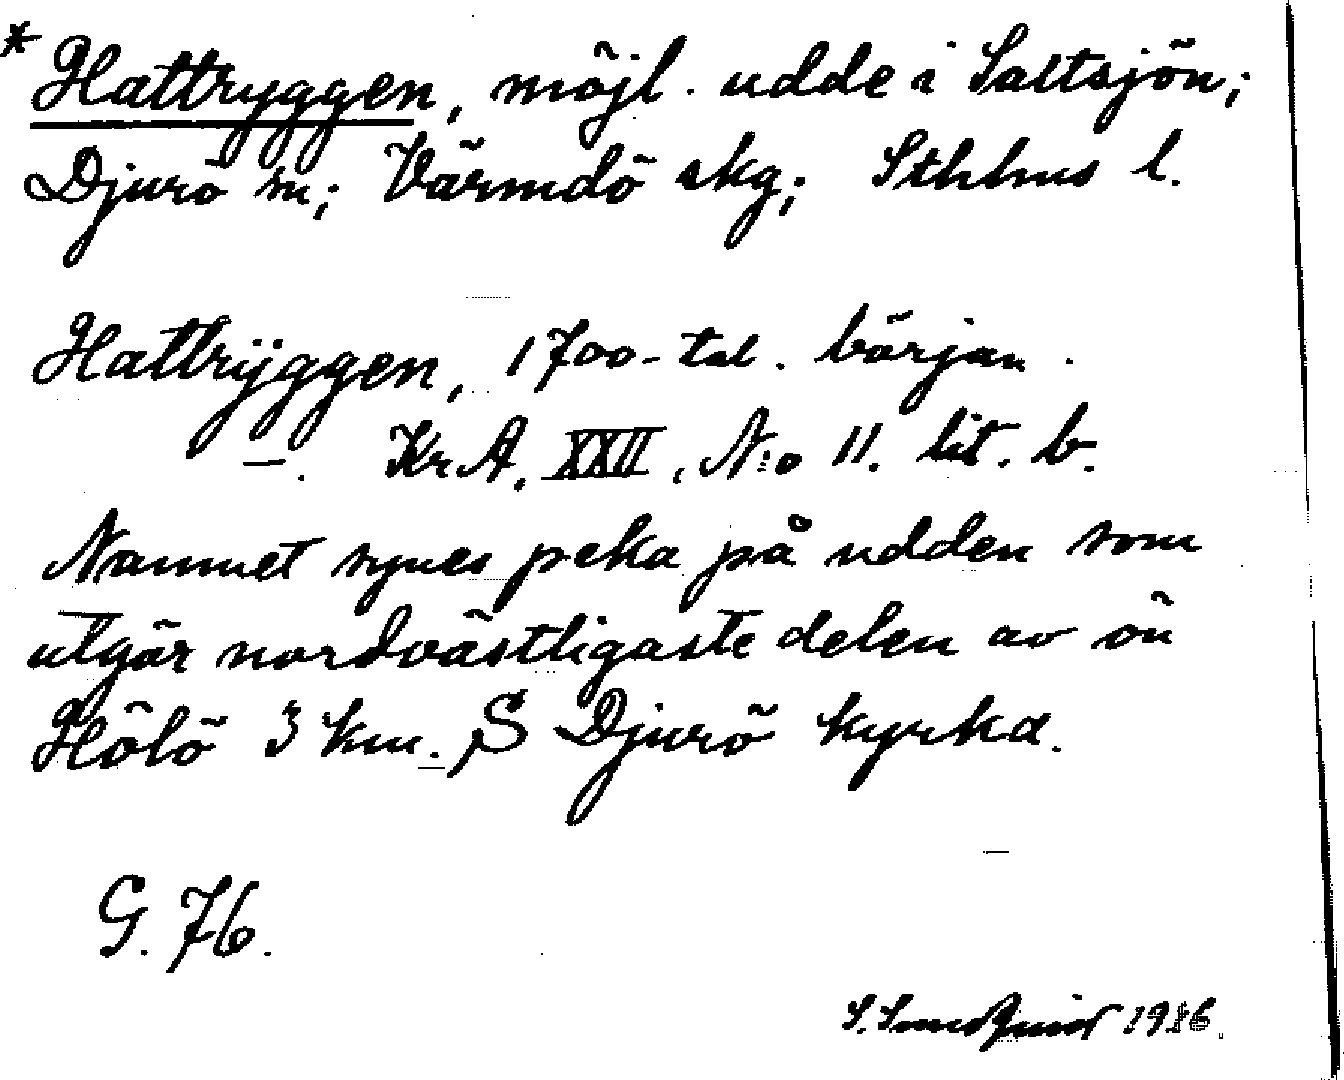 * Hattryggen, möjl. udde i Saltsjön;
Djurö sn; Värmdö skg; Sthlms l.
Hattrÿggen, 1700-tal. början.
KrA. XXII, N:o 11. lit. b.
Namnet synes peka på udden som
utgör nordvästligaste delen av ön
Hölö 3 km. S Djurö kyrka.
G. 76.
S. Sundquist 1936.